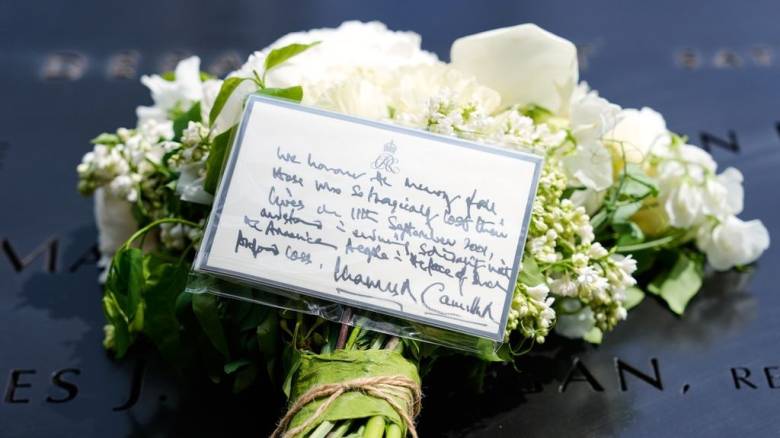 We honour the memory of all
those who so tragically lost their
lives on 11th September 2001,
and stand in enduring solidarity with
the American people in the face of their
profound loss.
Charles R Camilla R
ES J.
AN, RE